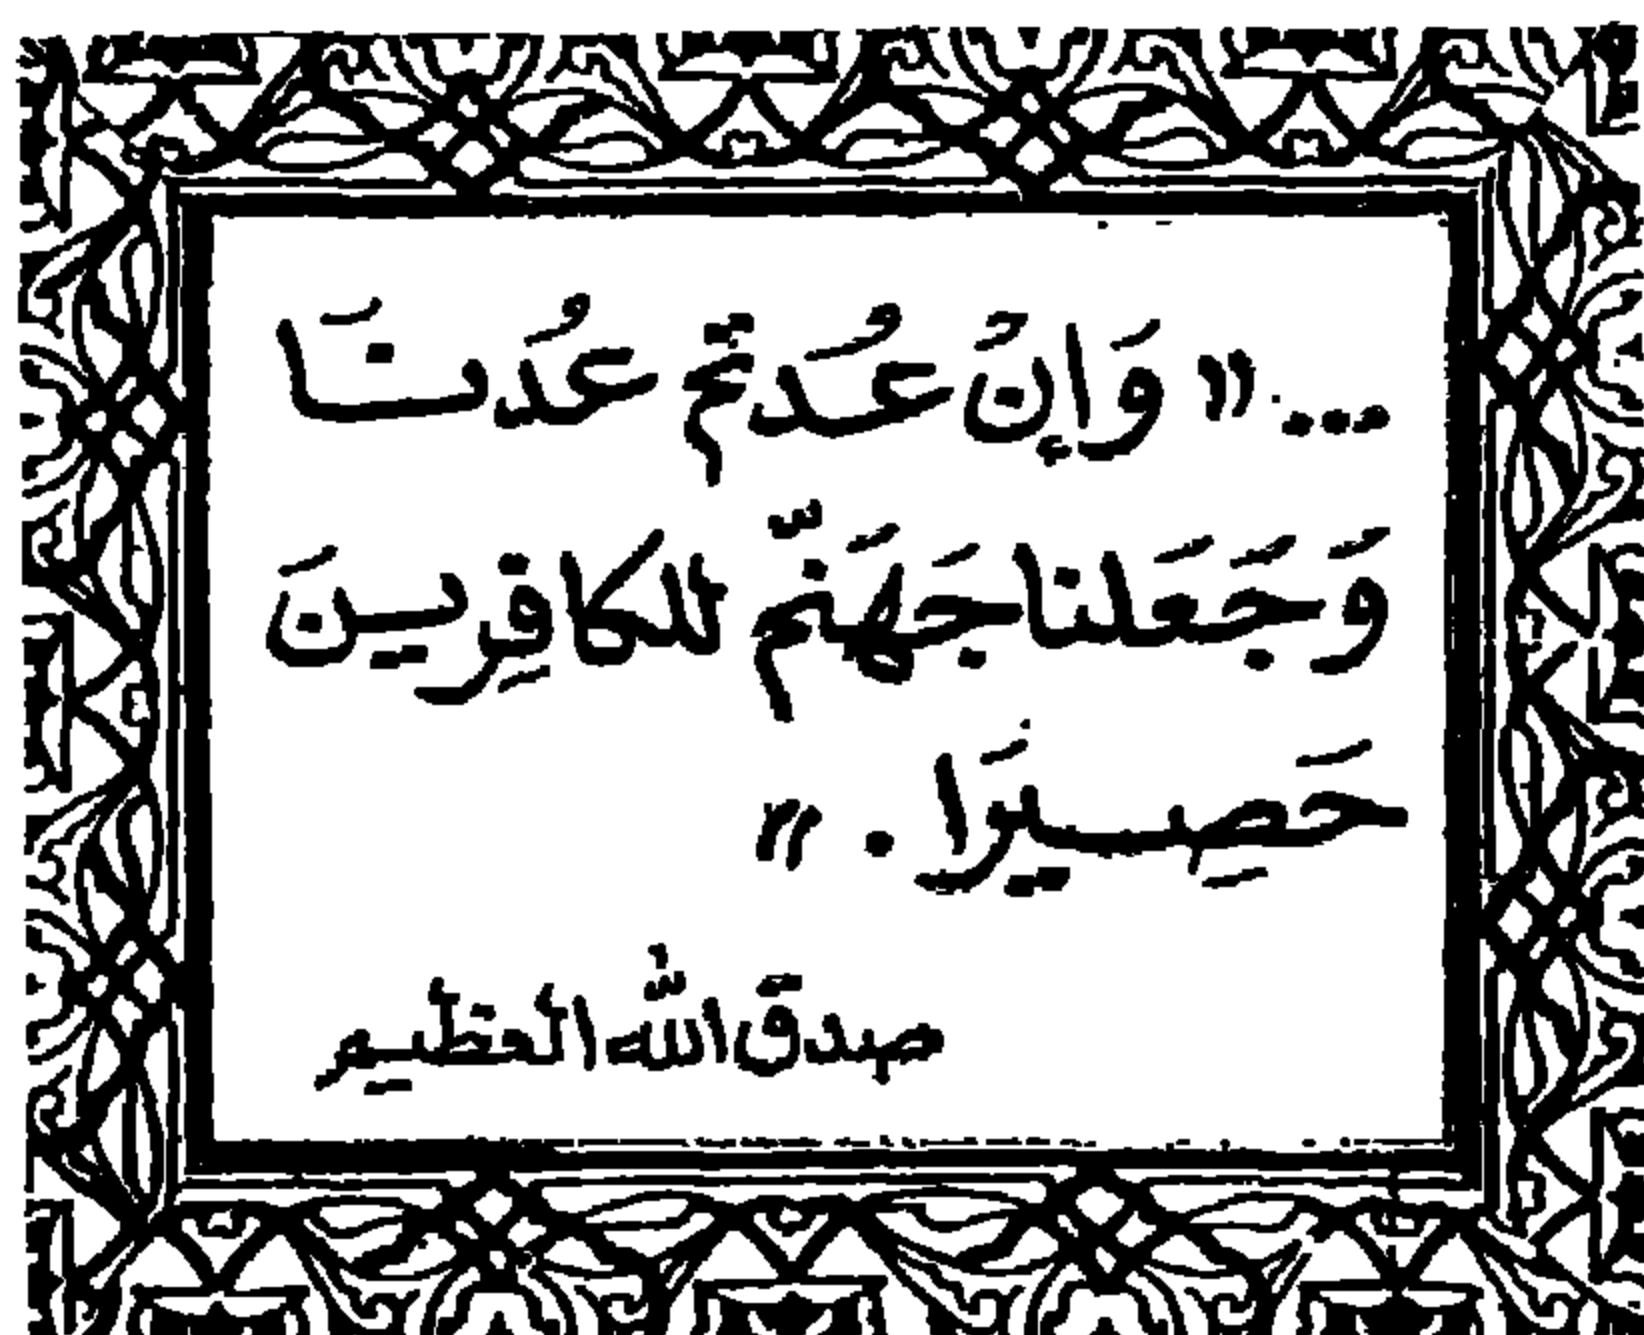 ... « وَإنْ عُدتم عُدنَا
وَجَعَلنا جَهَنّم للكافِرِينَ
حَصِيرَا . »
صدق الله العظيم